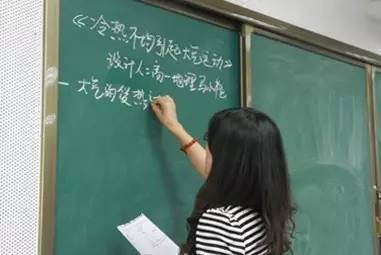 《冷热不均引起大气运动》
设计人:高一地理马小艳
一 大气的受热过